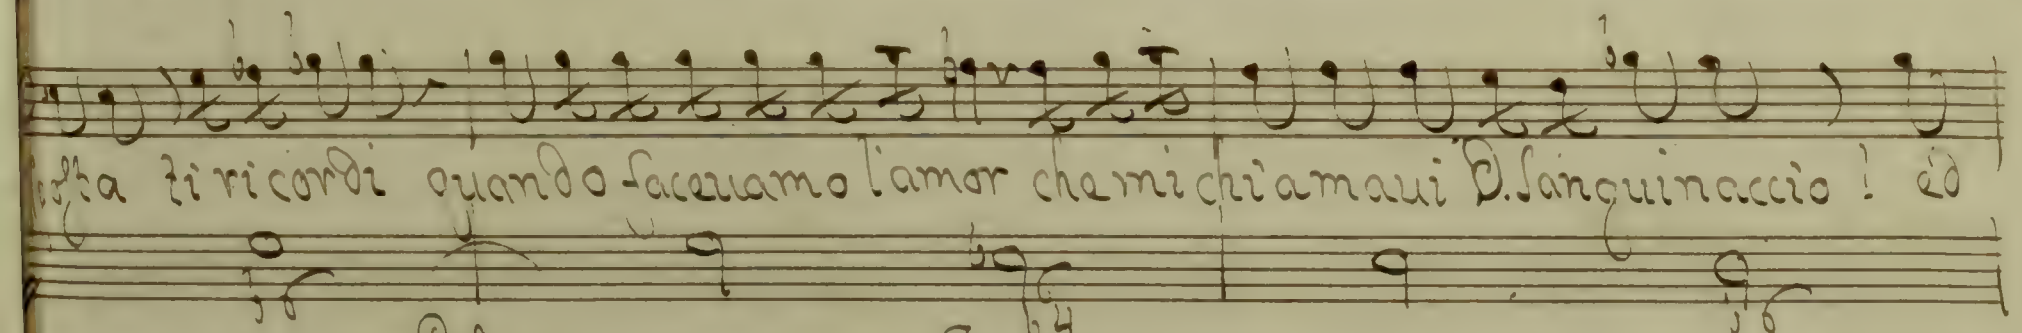 ti ricordi quando faceuamo l'amor che mi chiamaui D. Sanguinaccio! ed